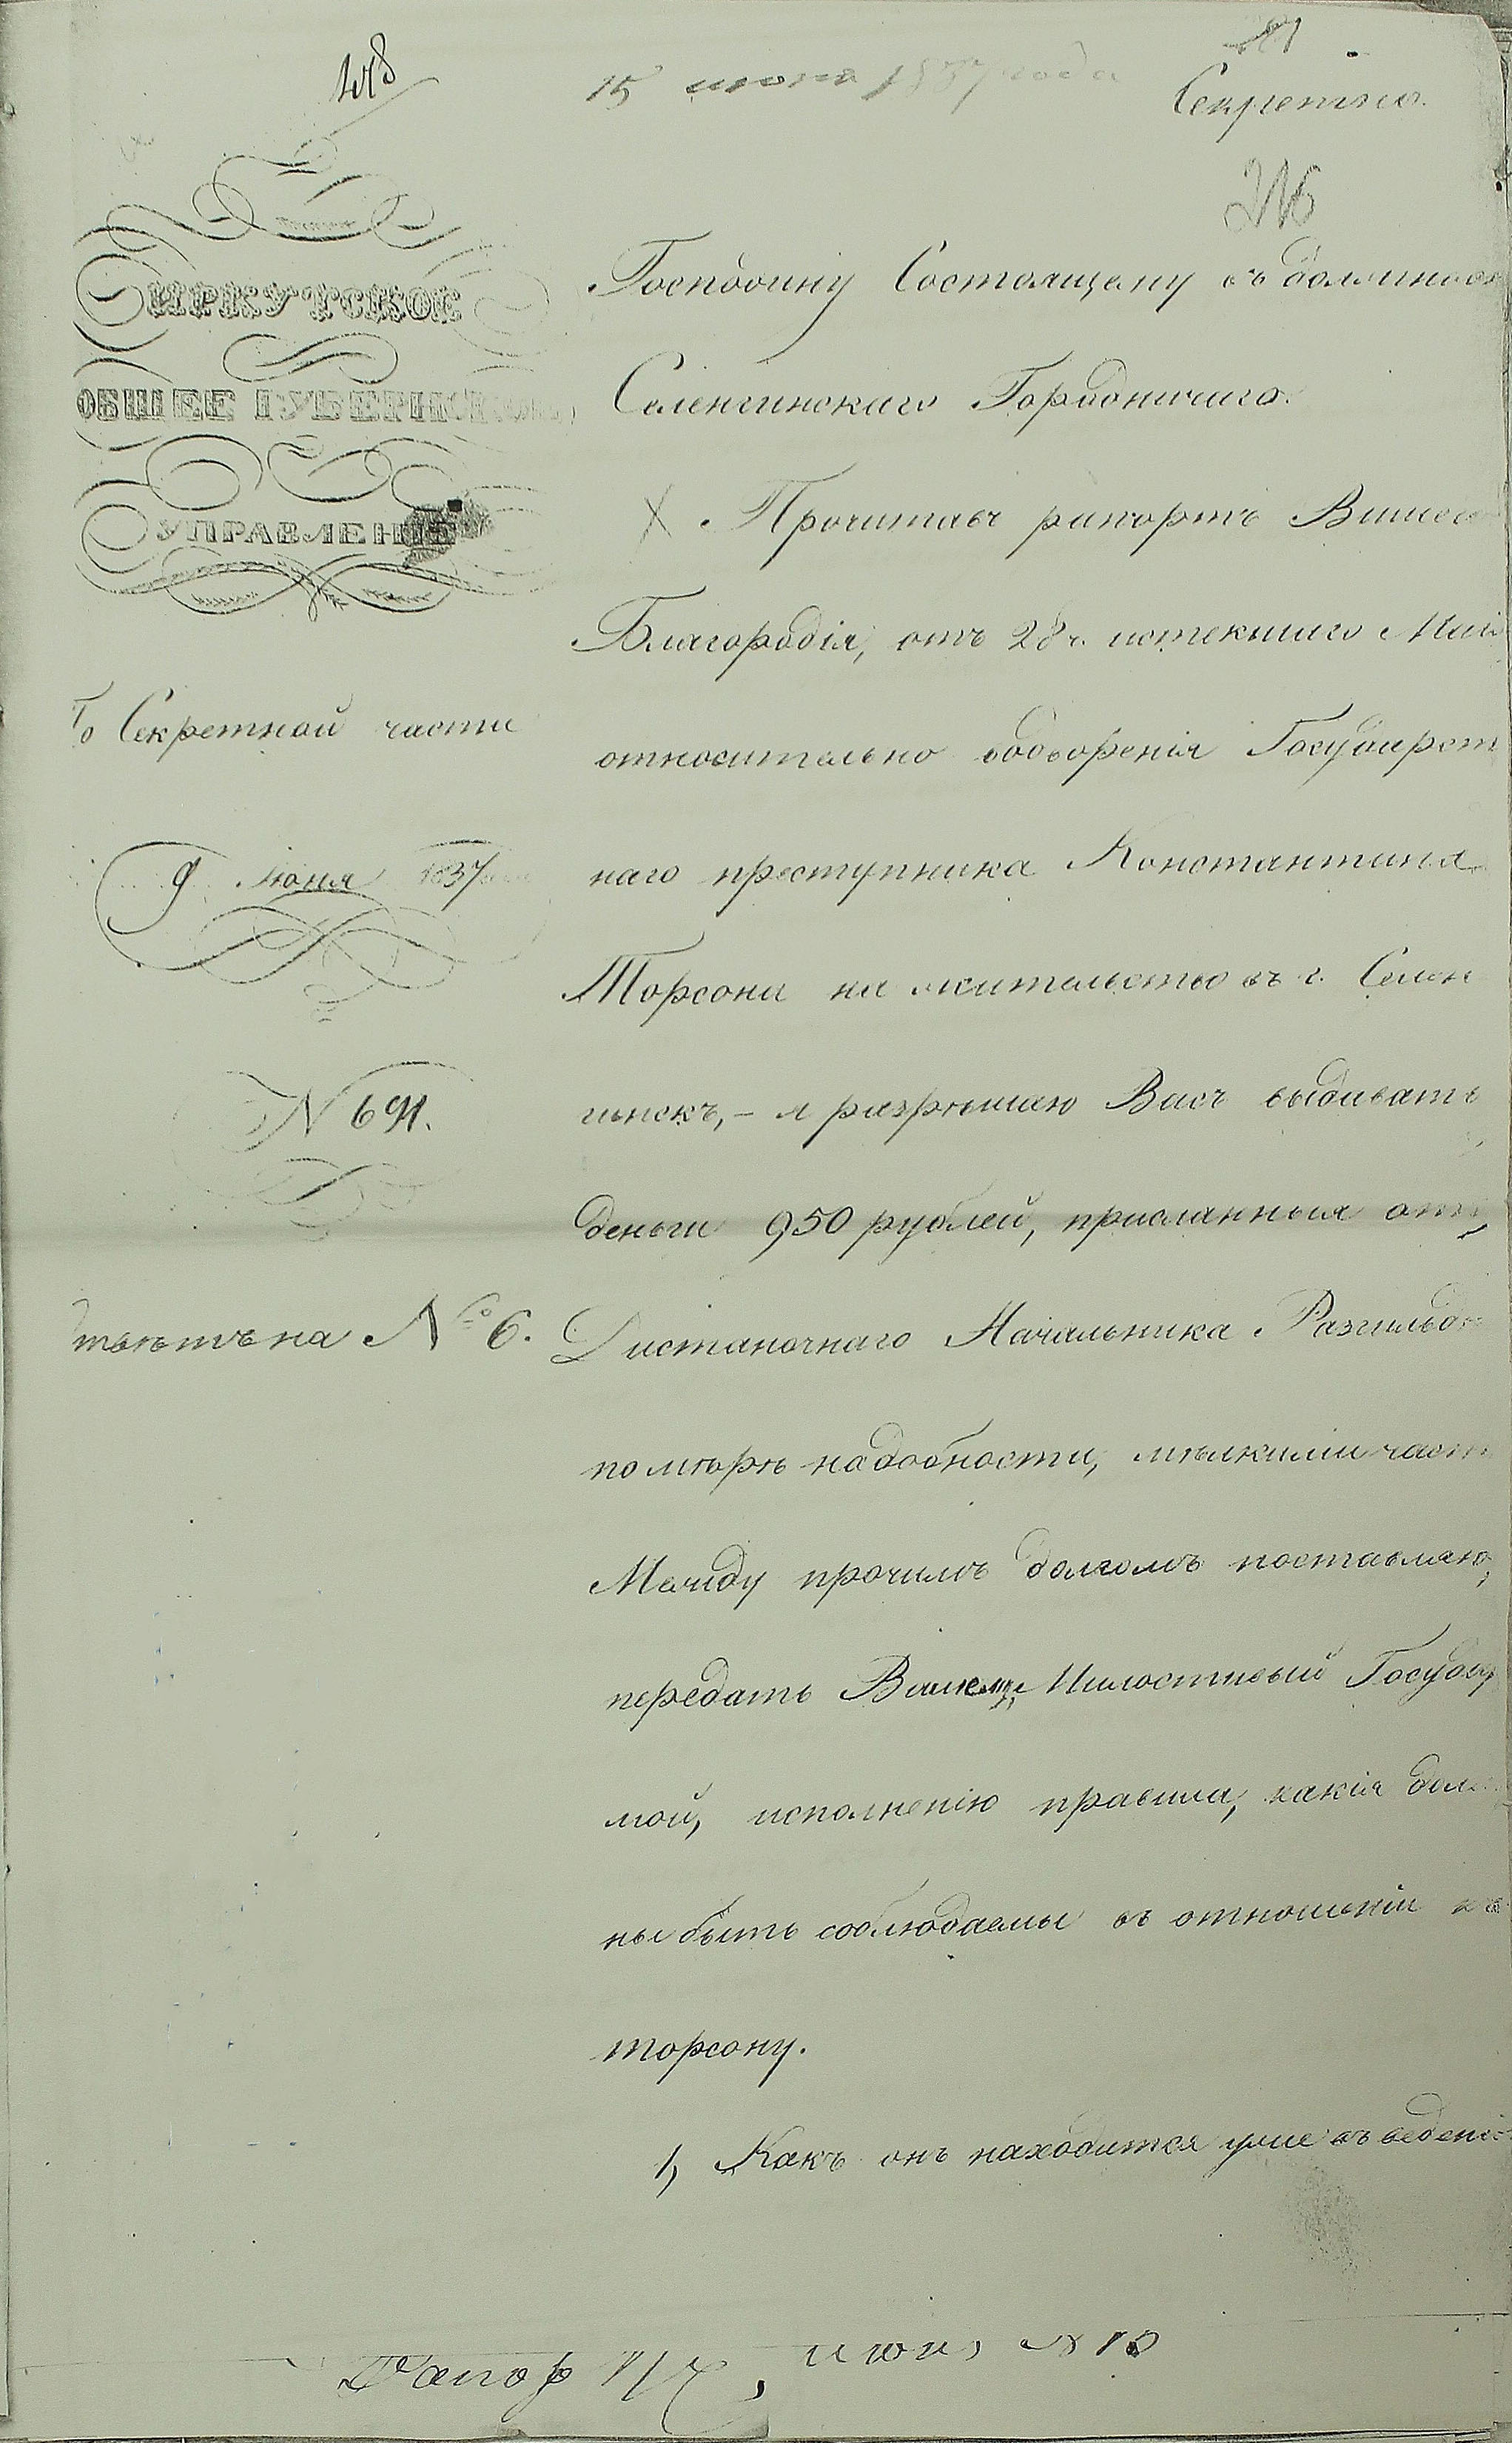 418
15 июня 1837 года
Секретно.
ИРКУТСКОЕ
ОБЩЕЕ ГУБЕРНСКОЕ
УПРАВЛЕНІЕ
По Секретной части
9 Июня 1837
N 691.
на № 6.
Господину Состоящему въ должнос
Селенгинскаго Городничаго.
Прочитавъ рапортъ Вашего
Благородія, отъ 28 ч. истекшаго Маія
относительно водворенія Государст
наго преступника Константина
Торсона на жительство въ г. Селен
гинскъ, – я разрѣшаю Васъ выдавать
деньги 950 рублей, присланныя отъ
Дистаночнаго Начальника Разгильде
по мѣрѣ надобности, мѣлкими част
Между прочимъ долгомъ поставляю,
передать Вамъ, Милостивый Государ
мой, исполненію правила, какія долж
ны быть соблюдаемы въ отношеніи къ
торсону.
1, Какъ онъ находится уже въ веденіи